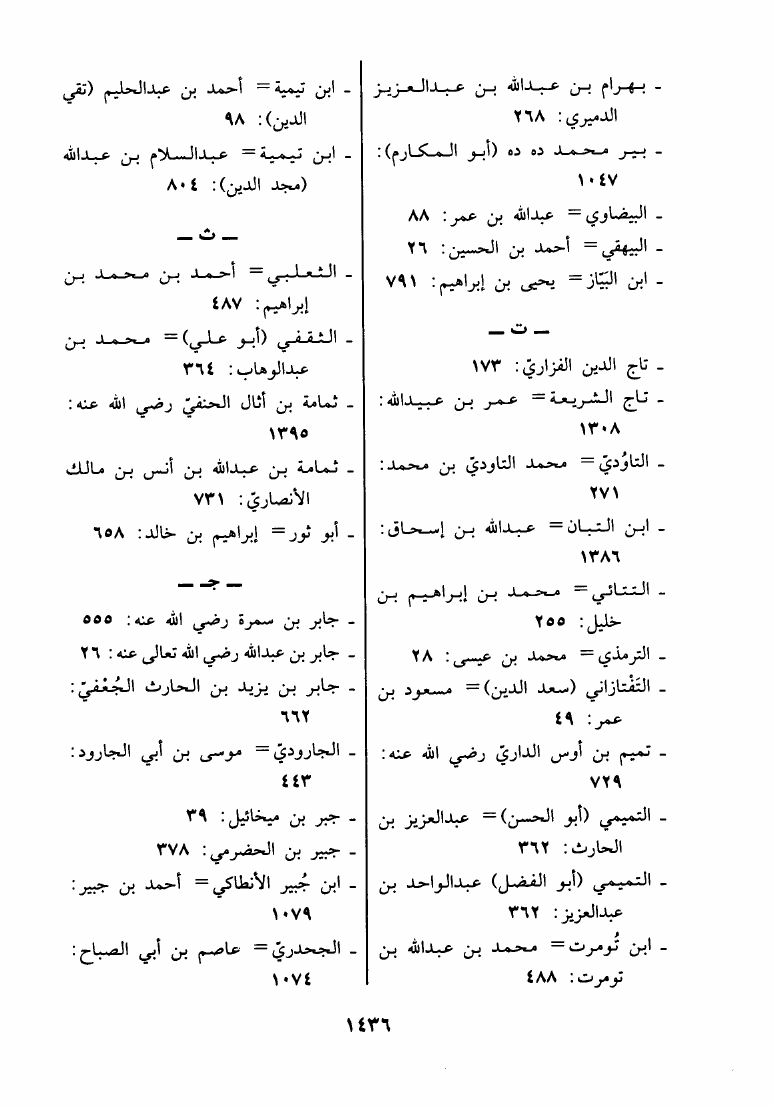 - بهرام بن عبدالله بن عبدالعزيز
الدميري: ٢٦٨
- بير محمد ده ده (أبو المكارم):
١٠٤٧
- البيضاوي = عبدالله بن عمر: ٨٨
- البيهقي = أحمد بن الحسين: ٢٦
- ابن البيّاز = يحيى بن إبراهيم: ٧٩١
– ت –
- تاج الدين الفزاريّ: ١٧٣
- تاج الشريعة = عمر بن عبيدالله:
١٣٠٨
- التاوُديّ = محمد التاوديّ بن محمد:
٢٧١
- ابن التبان = عبدالله بن إسحاق:
١٣٨٦
- التتائي = محمد بن إبراهيم بن
خليل: ٢٥٥
- الترمذي = محمد بن عيسى: ٢٨
- التَفْتازاني (سعد الدين) = مسعود بن
عمر: ٤٩
- تميم بن أوس الداريّ رضي الله عنه:
٧٢٩
- التميمي (أبو الحسن) = عبدالعزيز بن
الحارث: ٣٦٢
- التميمي (أبو الفضل) عبدالواحد بن
عبدالعزيز: ٣٦٢
- ابن تُومرت = محمد بن عبدالله بن
تومرت: ٤٨٨
- ابن تيمية = أحمد بن عبدالحليم (تقي
الدين): ٩٨
- ابن تيمية = عبدالسلام بن عبدالله
(مجد الدين): ٨٠٤
– ث –
- الثعلبي = أحمد بن محمد بن
إبراهيم: ٤٨٧
- الثقفي (أبو علي) = محمد بن
عبدالوهاب: ٣٦٤
- ثمامة بن أثال الحنفيّ رضي الله عنه:
١٣٩٥
- ثمامة بن عبدالله بن أنس بن مالك
الأنصاريّ: ٧٣١
- أبو ثور = إبراهيم بن خالد: ٦٥٨
– جـ –
- جابر بن سمرة رضي الله عنه: ٥٥٥
- جابر بن عبدالله رضي الله تعالى عنه: ٢٦
- جابر بن يزيد بن الحارث الجُعْفيّ:
٦٦٢
- الجاروديّ = موسى بن أبي الجارود:
٤٤٣
- جبر بن ميخائيل: ٣٩
- جبير بن الحضرمي: ٣٧٨
- ابن جُبير الأنطاكي = أحمد بن جبير:
١٠٧٩
- الجحدريّ = عاصم بن أبي الصباح:
١٠٧٤
١٤٣٦